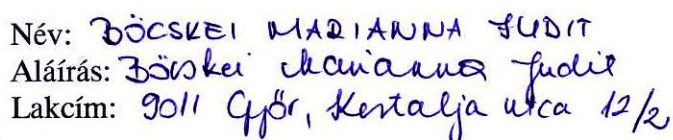 Név: BÖCSKEI MARIANNA JUDIT
Aláírás: Böcskei Marianna Judit
Lakcím: 9011 Győr, Kertalja utca 12/2